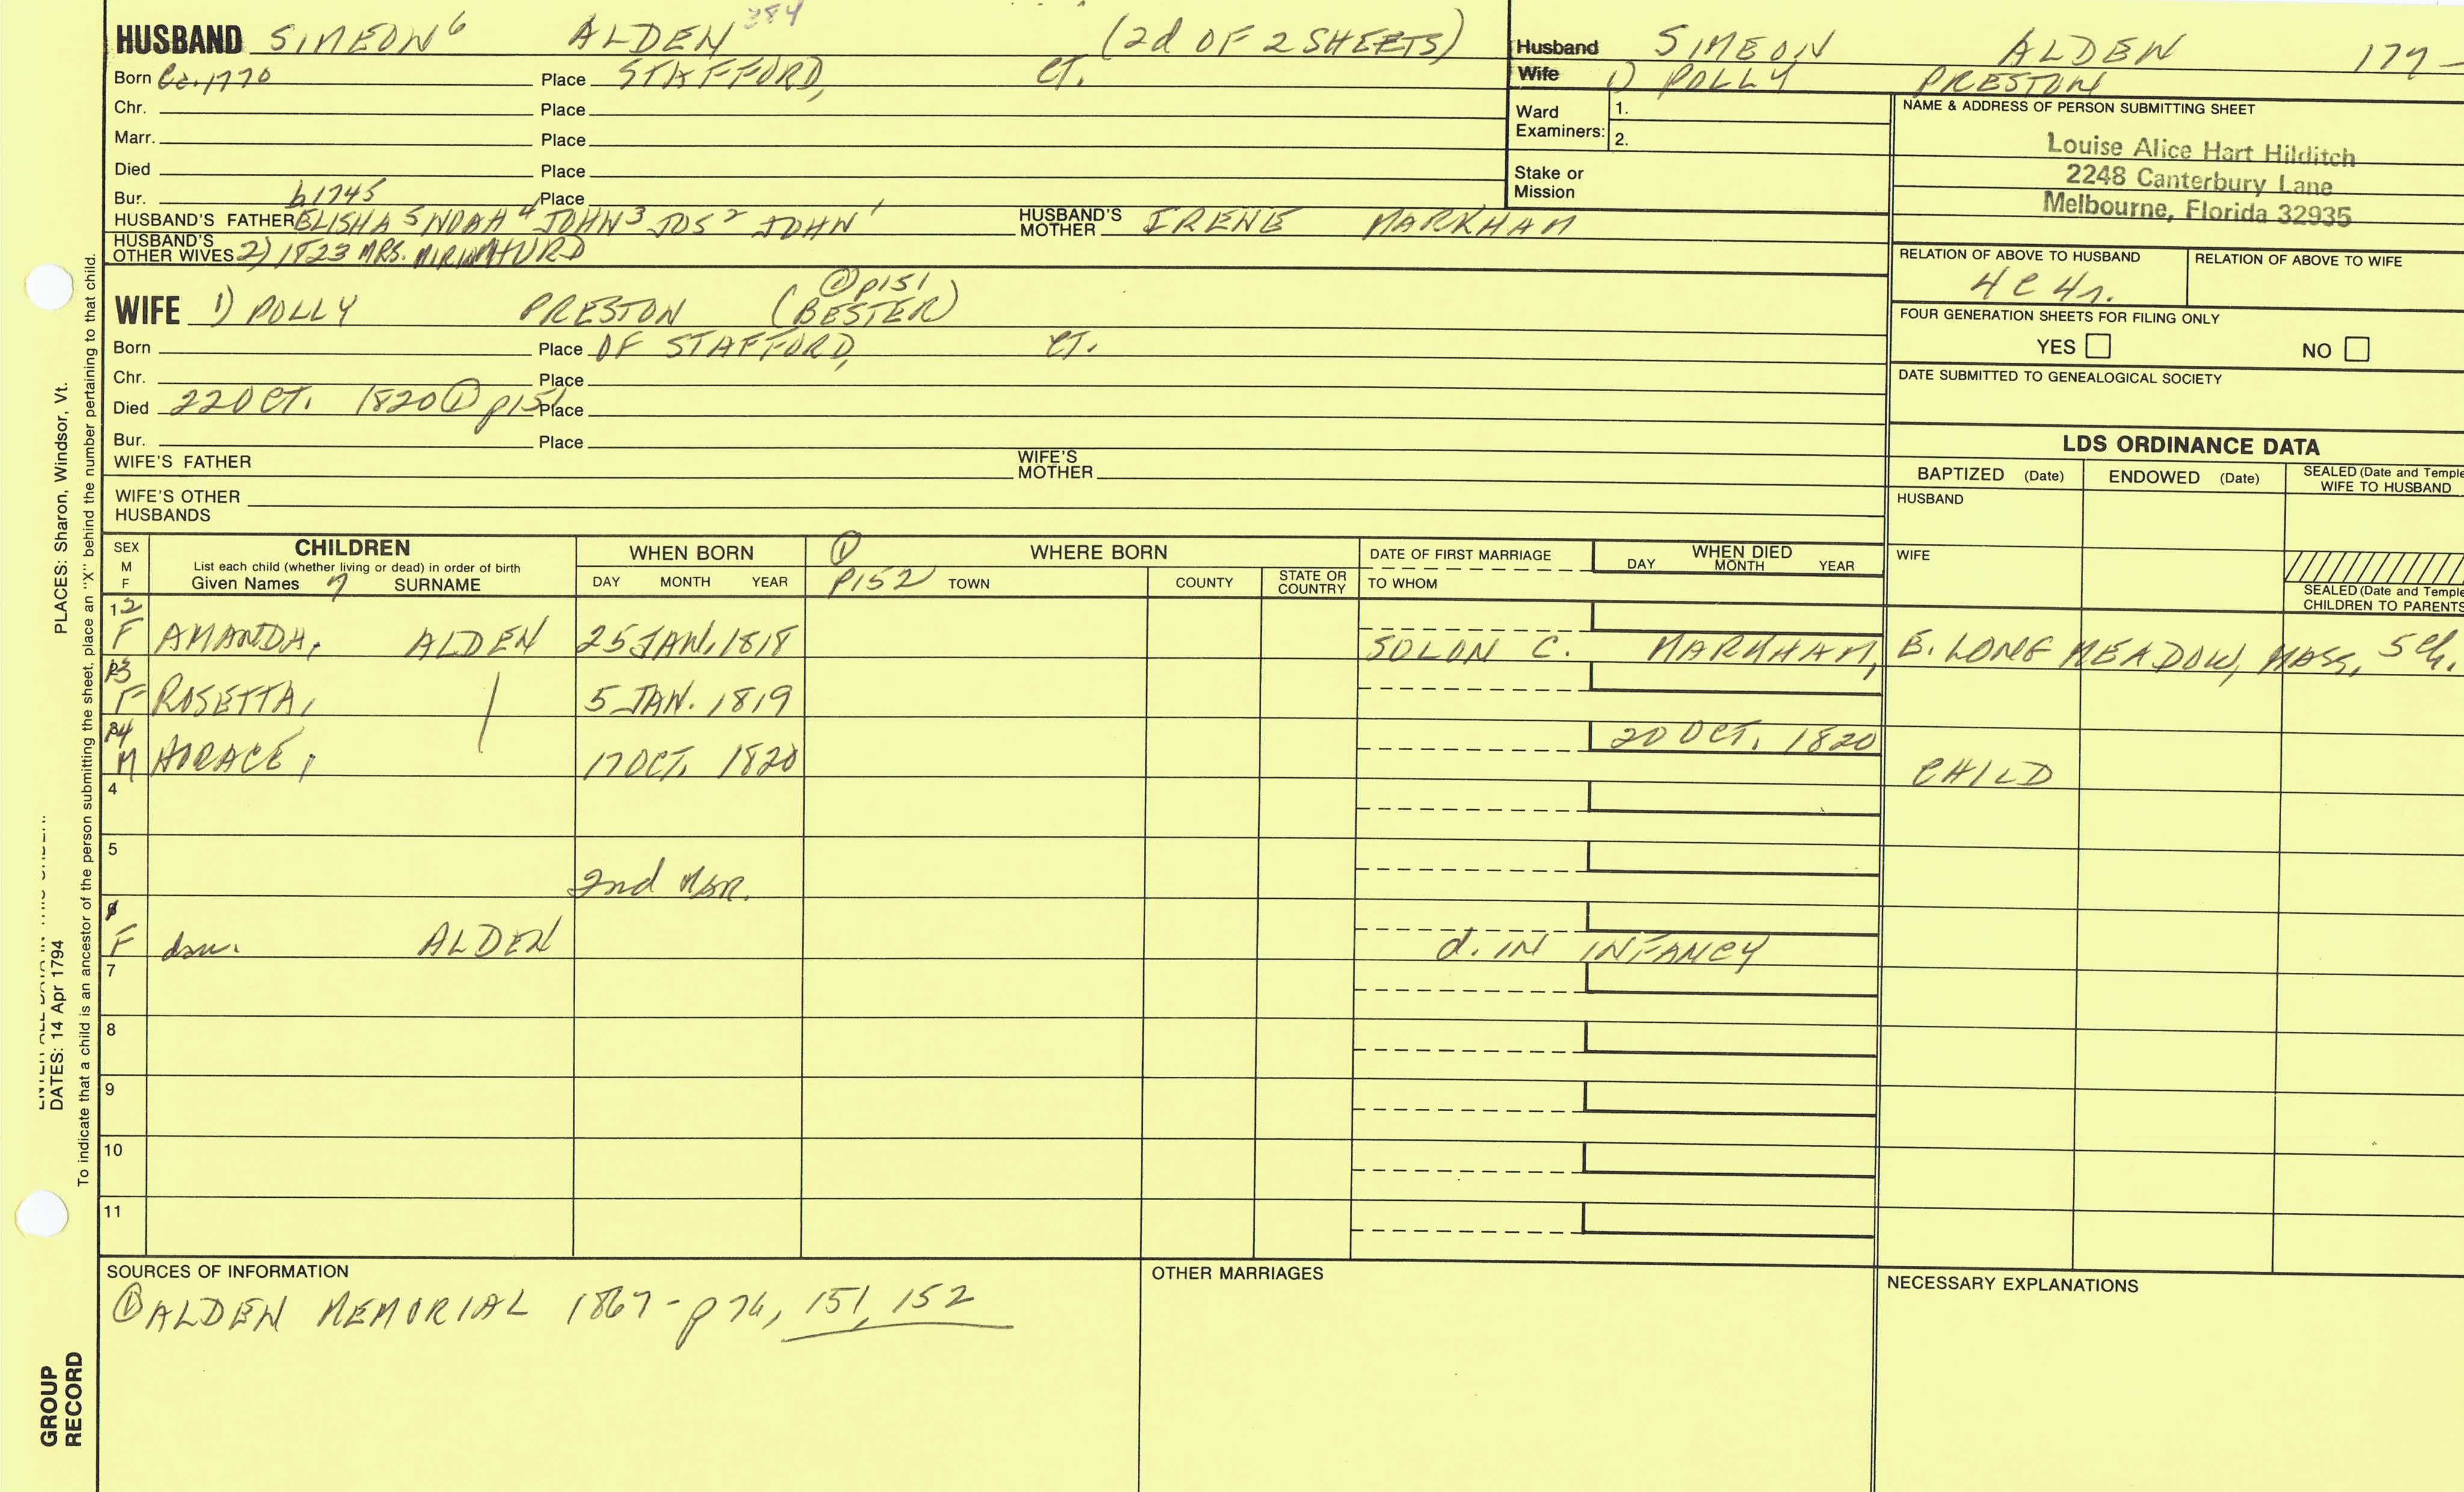 HUSBAND SIMEON 6 ALDEN 384 (2d OF 2 SHEETS)
Born Ca. 1770 Place STAFFORD, CT.
Chr. Place
Marr. Place
Died Place
Bur. b1745 Place
HUSBAND'S FATHER ELISHA 5 NOAH 4 JOHN 3 JOS 2 JOHN 1 HUSBAND'S MOTHER IRENE MARKHAM
HUSBAND'S OTHER WIVES 2) 1823 MRS.
Husband SIMEON ALDEN 177-
Wife 1) POLLY PRESTON
Ward Examiners: 1.
2.
Stake or Mission
NAME & ADDRESS OF PERSON SUBMITTING SHEET
Louise Alice Hart Hilditch
2248 Canterbury Lane
Melbourne, Florida 32935
RELATION OF ABOVE TO HUSBAND RELATION OF ABOVE TO WIFE
4C4r.
FOUR GENERATION SHEETS FOR FILING ONLY
YES NO
DATE SUBMITTED TO GENEALOGICAL SOCIETY
① p151
WIFE 1) POLLY PRESTON (BESTER)
Born Place OF STAFFORD, CT.
Chr. Place
Died 22 OCT. 1820 ① p151 Place
Bur. Place
WIFE'S FATHER WIFE'S MOTHER
WIFE'S OTHER HUSBANDS
LDS ORDINANCE DATA
BAPTIZED (Date) ENDOWED (Date) SEALED (Date and Temple
WIFE TO HUSBAND
HUSBAND
WIFE
SEALED (Date and Temple
CHILDREN TO PARENTS
SEX M F CHILDREN
List each child (whether living or dead) in order of birth
Given Names 7 SURNAME
WHEN BORN
DAY MONTH YEAR
① WHERE BORN
P152 TOWN COUNTY STATE OR COUNTRY
DATE OF FIRST MARRIAGE
TO WHOM
WHEN DIED
DAY MONTH YEAR
12
F AMANDA, ALDEN 25 JAN. 1818 SOLON C. MARKHAM, E. LONGMEADOW, MASS, 5ch.
13
F ROSETTA, 5 JAN. 1819
14
M HORACE, 17 OCT. 1820 20 OCT. 1820 CHILD
4
5
2nd Mar.
6
F dau. ALDEN d. IN INFANCY
7
8
9
10
11
SOURCES OF INFORMATION
① ALDEN MEMORIAL 1867 - p 76, 151, 152
OTHER MARRIAGES
NECESSARY EXPLANATIONS
PLACES: Sharon, Windsor, Vt.
DATES: 14 Apr 1794
To indicate that a child is an ancestor of the person submitting the sheet, place an "X" behind the number pertaining to that child.
GROUP
RECORD